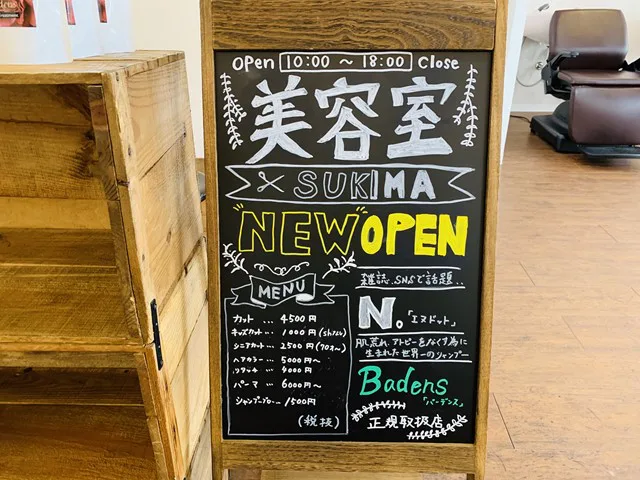 Open 10:00 ~ 18:00 Close
美容室
SUKIMA
"NEW" OPEN
MENU
カット … 4500円
キッズカット … 1000円
シニアカット … 2500円(70才〜)
ヘアカラー … 5000円〜
リタッチ … 4000円
パーマ … 6000円〜
シャンプーブロー … 1500円
(税抜)
雑誌.SNSで話題..
N.「エヌドット」
肌荒れ.アトピーをなくす為に
生まれた世界一のシャンプー
Badens
「バーデンス」
正規取扱店